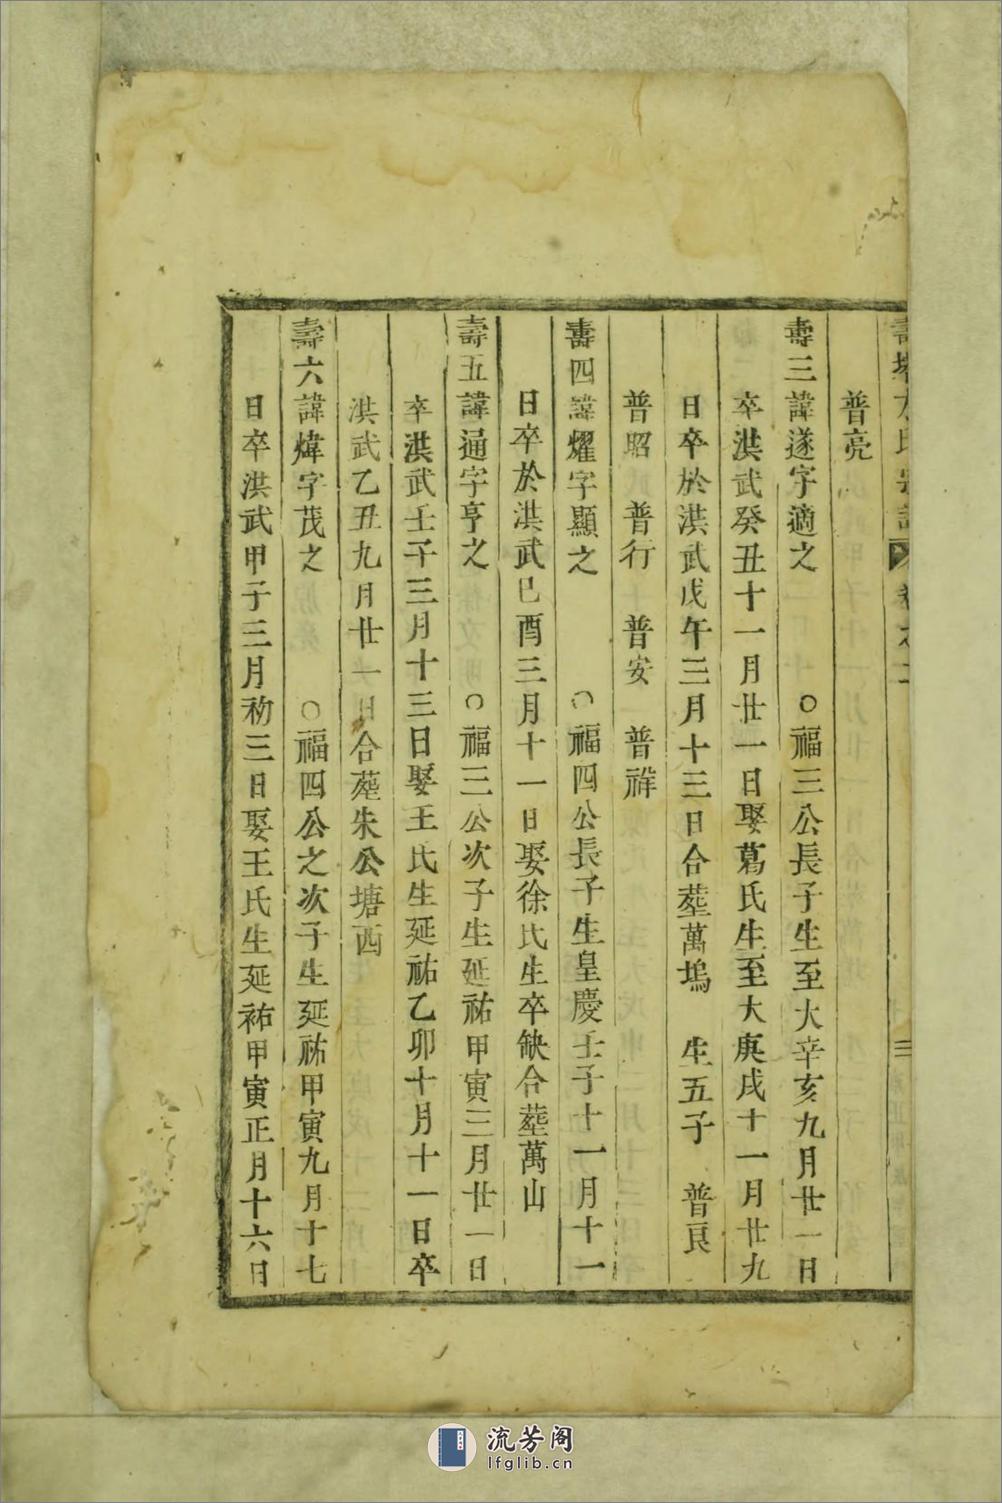 普亮
壽三諱遂字適之 ○福三公長子生至大辛亥九月廿一日
卒洪武癸丑十一月廿一日娶葛氏生至大庚戌十一月廿九
日卒於洪武戊午三月十三日合塟萬塢 生五子 普良
普昭 普行 普安 普祥
壽四諱燿字顯之 ○福四公長子生皇慶壬子十一月十一
日卒於洪武巳酉三月十一日娶徐氏生卒缺合塟萬山
壽五諱通字亨之 ○福三公次子生延祐甲寅三月廿一日
卒洪武壬子三月十三日娶王氏生延祐乙卯十月十一日卒
洪武乙丑九月廿一日合塟朱公塘西
壽六諱煒字茂之 ○福四公之次子生延祐甲寅九月十七
日卒洪武甲子三月初三日娶王氏生延祐甲寅正月十六日
流芳阁
lfglib.cn